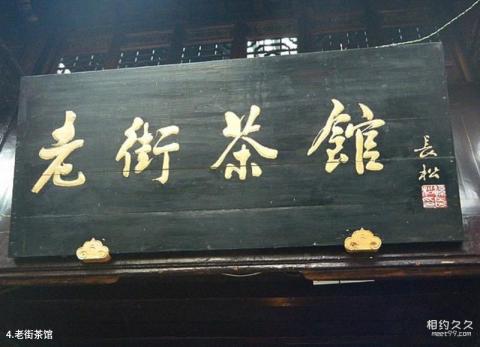 老街茶館
長松
4.老街茶馆
相约久久
meet99.com